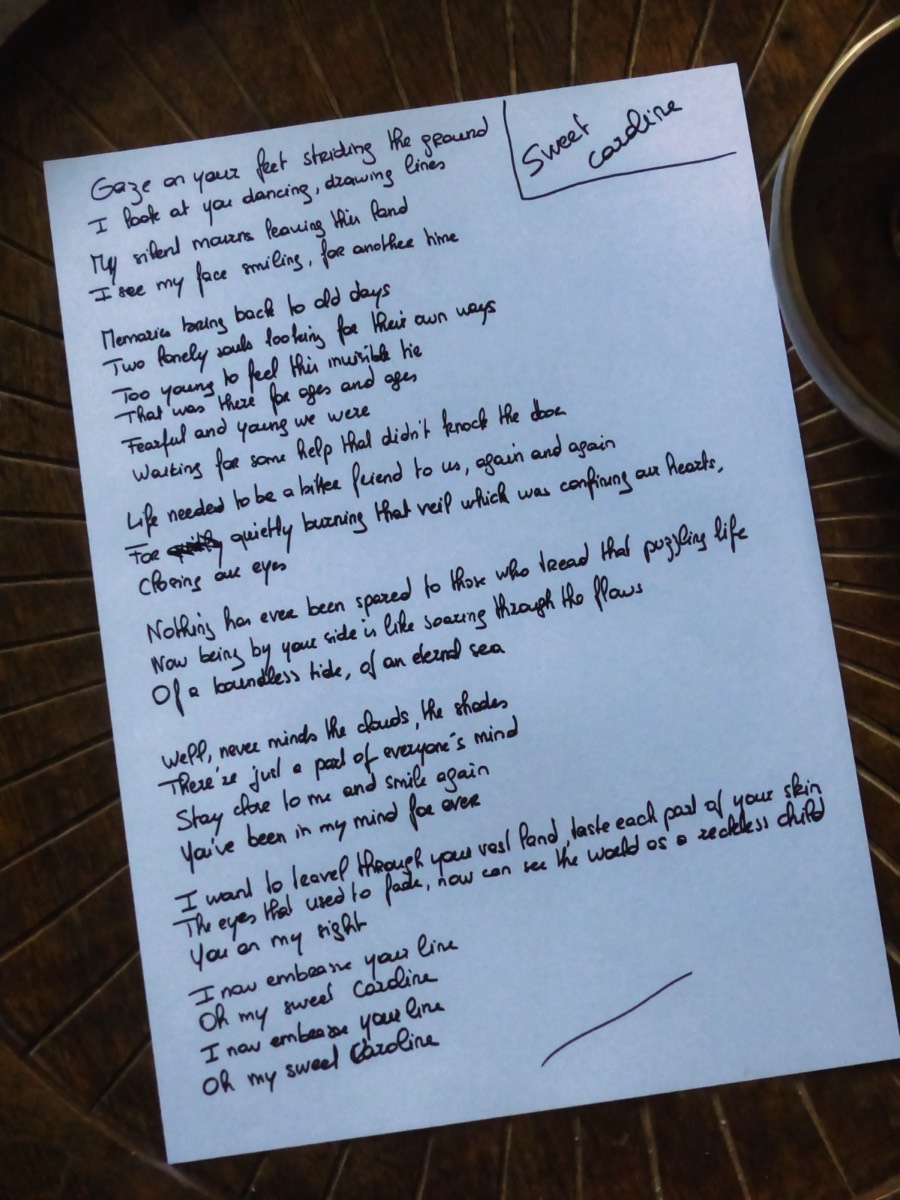 Sweet
Caroline
Gaze on your feet striding the ground
I look at you dancing, drawing lines
My silent mourns leaving this land
I see my face smiling, for another time
Memories bring back to old days
Two lonely souls looking for their own ways
Too young to feel this invisible tie
That was there for ages and ages
Fearful and young we were
Waiting for some help that didn't knock the door
Life needed to be a bitter friend to us, again and again
For quietly burning that veil which was confining our hearts,
Closing our eyes
Nothing has ever been spared to those who tread that puzzling life
Now being by your side is like soaring through the flows
Of a boundless tide, of an eternal sea
Well, never minds the clouds, the shades
There're just a part of everyone's mind
Stay close to me and smile again
You've been in my mind for ever
I want to travel through your vast land, taste each part of your skin
The eyes that used to fade, now can see the world as a reckless child
You on my right
I now embrace your line
Oh my sweet Caroline
I now embrace your line
Oh my sweet Caroline